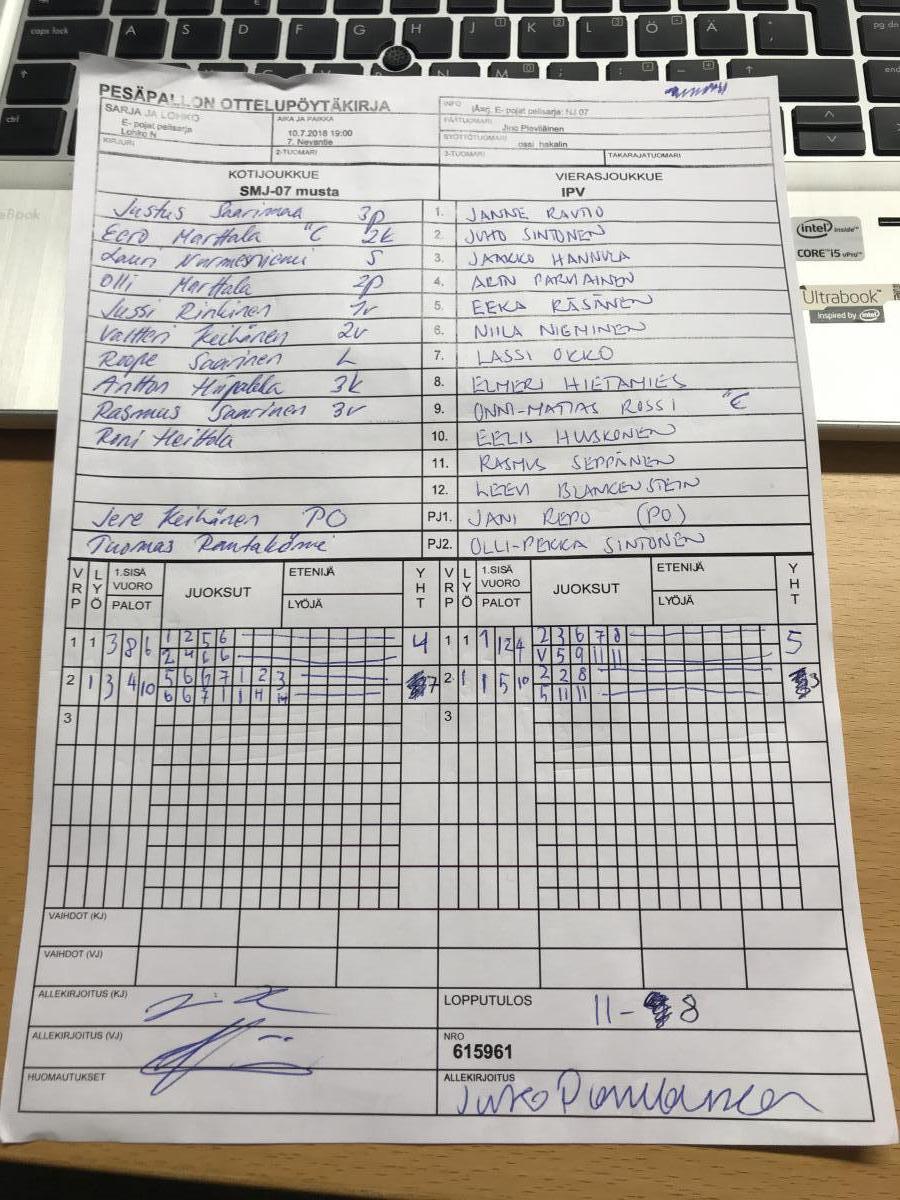 caps lock A S D F G H J K L Ö Ä
pg dn
end
ctrl
N M
PESÄPALLON OTTELUPÖYTÄKIRJA
SARJA JA LOHKO
E- pojat pelisarja
Lohko N
KIRJURI
AIKA JA PAIKKA
10.7.2018 19:00
7. Nevantie
2-TUOMARI
INFO
E- pojat pelisarja: NJ 07
PÄÄTUOMARI
SYÖTTÖTUOMARI
ossi hakalin
3-TUOMARI TAKARAJATUOMARI
KOTIJOUKKUE VIERASJOUKKUE
SMJ-07 musta IPV
Justus Saarimaa 3p 1. JANNE RAUTIO
Eero Marttala "C 2k 2. JUHO SINTONEN
Lauri Nurmesniemi S 3. JAAKKO HANNULA
Olli Marttala 2p 4. PARVIAINEN
Jussi Rinkinen 1v 5. EEKA RÄSÄNEN
Valtteri Keihänen 2v 6. NIILA NIEMINEN
Roope Saarinen L 7. LASSI OKKO
Antton 3k 8. ELMERI HIETAMIES
Rasmus Saarinen 3v 9. ONNI-MATIAS ROSSI "C
Roni Heittola 10. EELIS HUSKONEN
11. RASMUS SEPPÄNEN
12. LEEVI BLANKENSTEIN
Jere Keihänen PO PJ1. JANI REPO (PO)
Tuomas PJ2. OLLI-PEKKA SINTONEN
VRP LYÖ 1.SISÄ VUORO PALOT JUOKSUT ETENIJÄ LYÖJÄ YHT VRP LYÖ 1.SISÄ VUORO PALOT JUOKSUT ETENIJÄ LYÖJÄ YHT
1 1 3 8 6 1 2 5 6 4 1 1 1 12 4 2 3 6 7 8 5
2 4 6 6 V 5 9 11 11
2 1 3 4 10 5 6 6 7 1 2 3 7 2 1 1 5 10 2 2 8 3
6 6 7 1 1 5 11 11
3 3
VAIHDOT (KJ)
VAIHDOT (VJ)
ALLEKIRJOITUS (KJ)
LOPPUTULOS 11-8
ALLEKIRJOITUS (VJ)
NRO
615961
HUOMAUTUKSET
ALLEKIRJOITUS
intel inside™
CORE™i5 vPro™
Ultrabook™
Inspired by intel